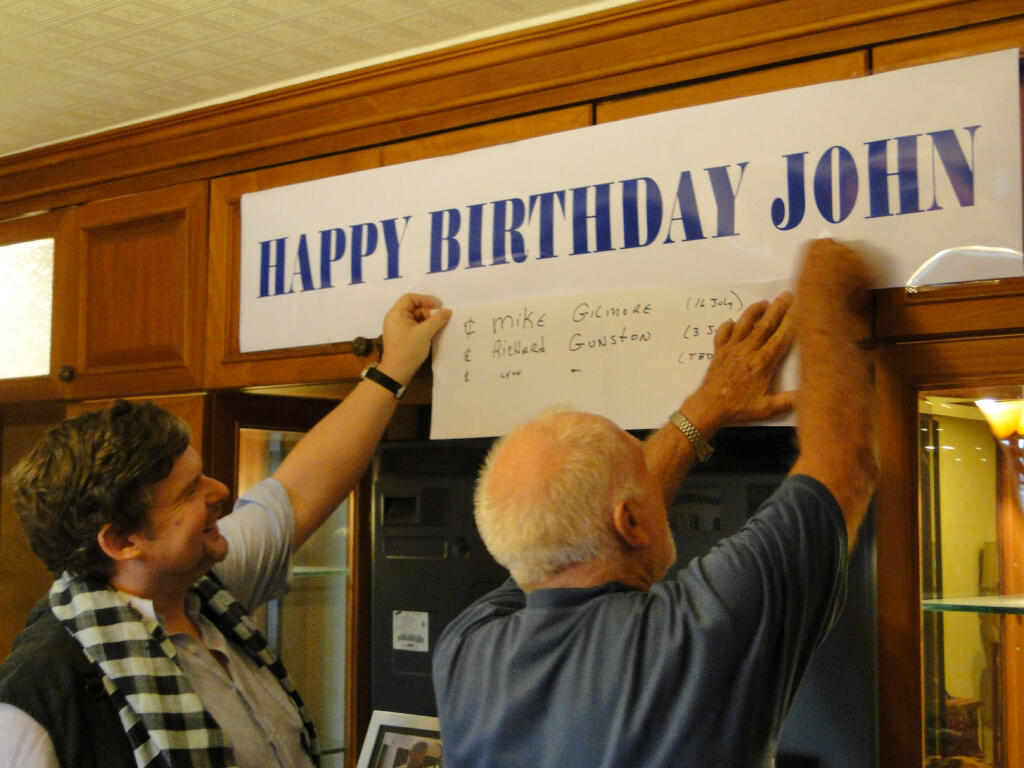 HAPPY BIRTHDAY JOHN
¢ MIKE GILMORE (16 July)
¢ RICHARD GUNSTON (3
¢ LYNN - (TBD